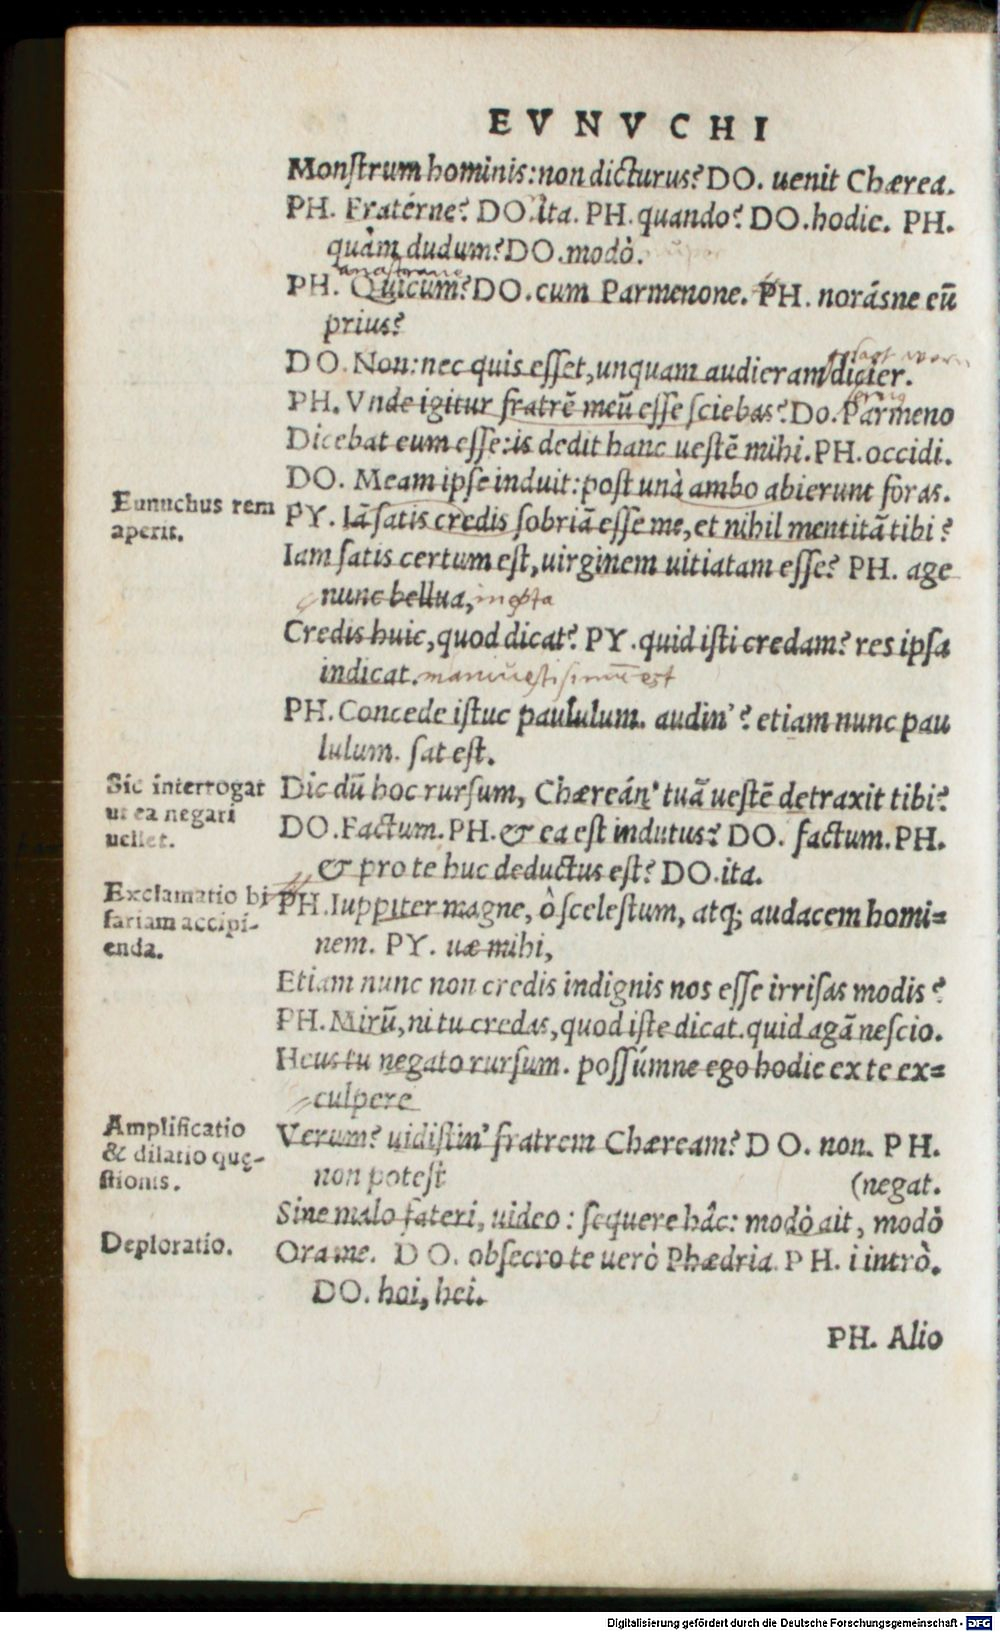 EVNVCHI
Monſtrum hominis: non dicturus? DO. uenit Chærea.
PH. Fratérne? DO. ita. PH. quando? DO. hodie. PH.
quàm dudum? DO. modò.
PH. Quicum? DO. cum Parmenone. PH. norásne eū
prius?
DO. Non: nec quis eſſet, unquam audieram dicier.
PH. Vnde igitur fratrē meū eſſe ſciebas? Do. Parmeno
Dicebat eum eſſe: is dedit hanc ueſtē mihi. PH. occidi.
DO. Meam ipſe induit: poſt unà ambo abierunt foras.
Eunuchus rem
aperit.
PY. Iā ſatis credis ſobriā eſſe me, et nihil mentitā tibi?
Iam ſatis certum eſt, uirginem uitiatam eſſe? PH. age
nunc bellua, inepta
Credis huic, quod dicat? PY. quid iſti credam? res ipſa
indicat.
PH. Concede iſtuc paululum. audin'? etiam nunc pau
lulum. ſat eſt.
Sic interrogat
ut ea negari
uellet.
Dic dū hoc rurſum, Chæreán' tuā ueſtē detraxit tibi?
DO. Factum. PH. & ea eſt indutus? DO. factum. PH.
& pro te huc deductus eſt? DO. ita.
Exclamatio bi
fariam accipi-
enda.
PH. Iuppiter magne, ò ſceleſtum, atq; audacem homi=
nem. PY. uæ mihi,
Etiam nunc non credis indignis nos eſſe irriſas modis?
PH. Mirū, ni tu credas, quod iſte dicat. quid agā neſcio.
Heus tu negato rurſum. poſſúmne ego hodie ex te ex=
culpere
Amplificatio
& dilatio quę-
ſtionis.
Verum? uidiſtin' fratrem Chæream? DO. non. PH.
non poteſt
(negat.
Sine malo fateri, uideo: ſequere hâc: modò ait, modò
Deploratio.
Ora me. DO. obſecro te uerò Phædria. PH. i intrò.
DO. hoi, hei.
PH. Alio
Digitalisierung gefördert durch die Deutsche Forschungsgemeinschaft - DFG